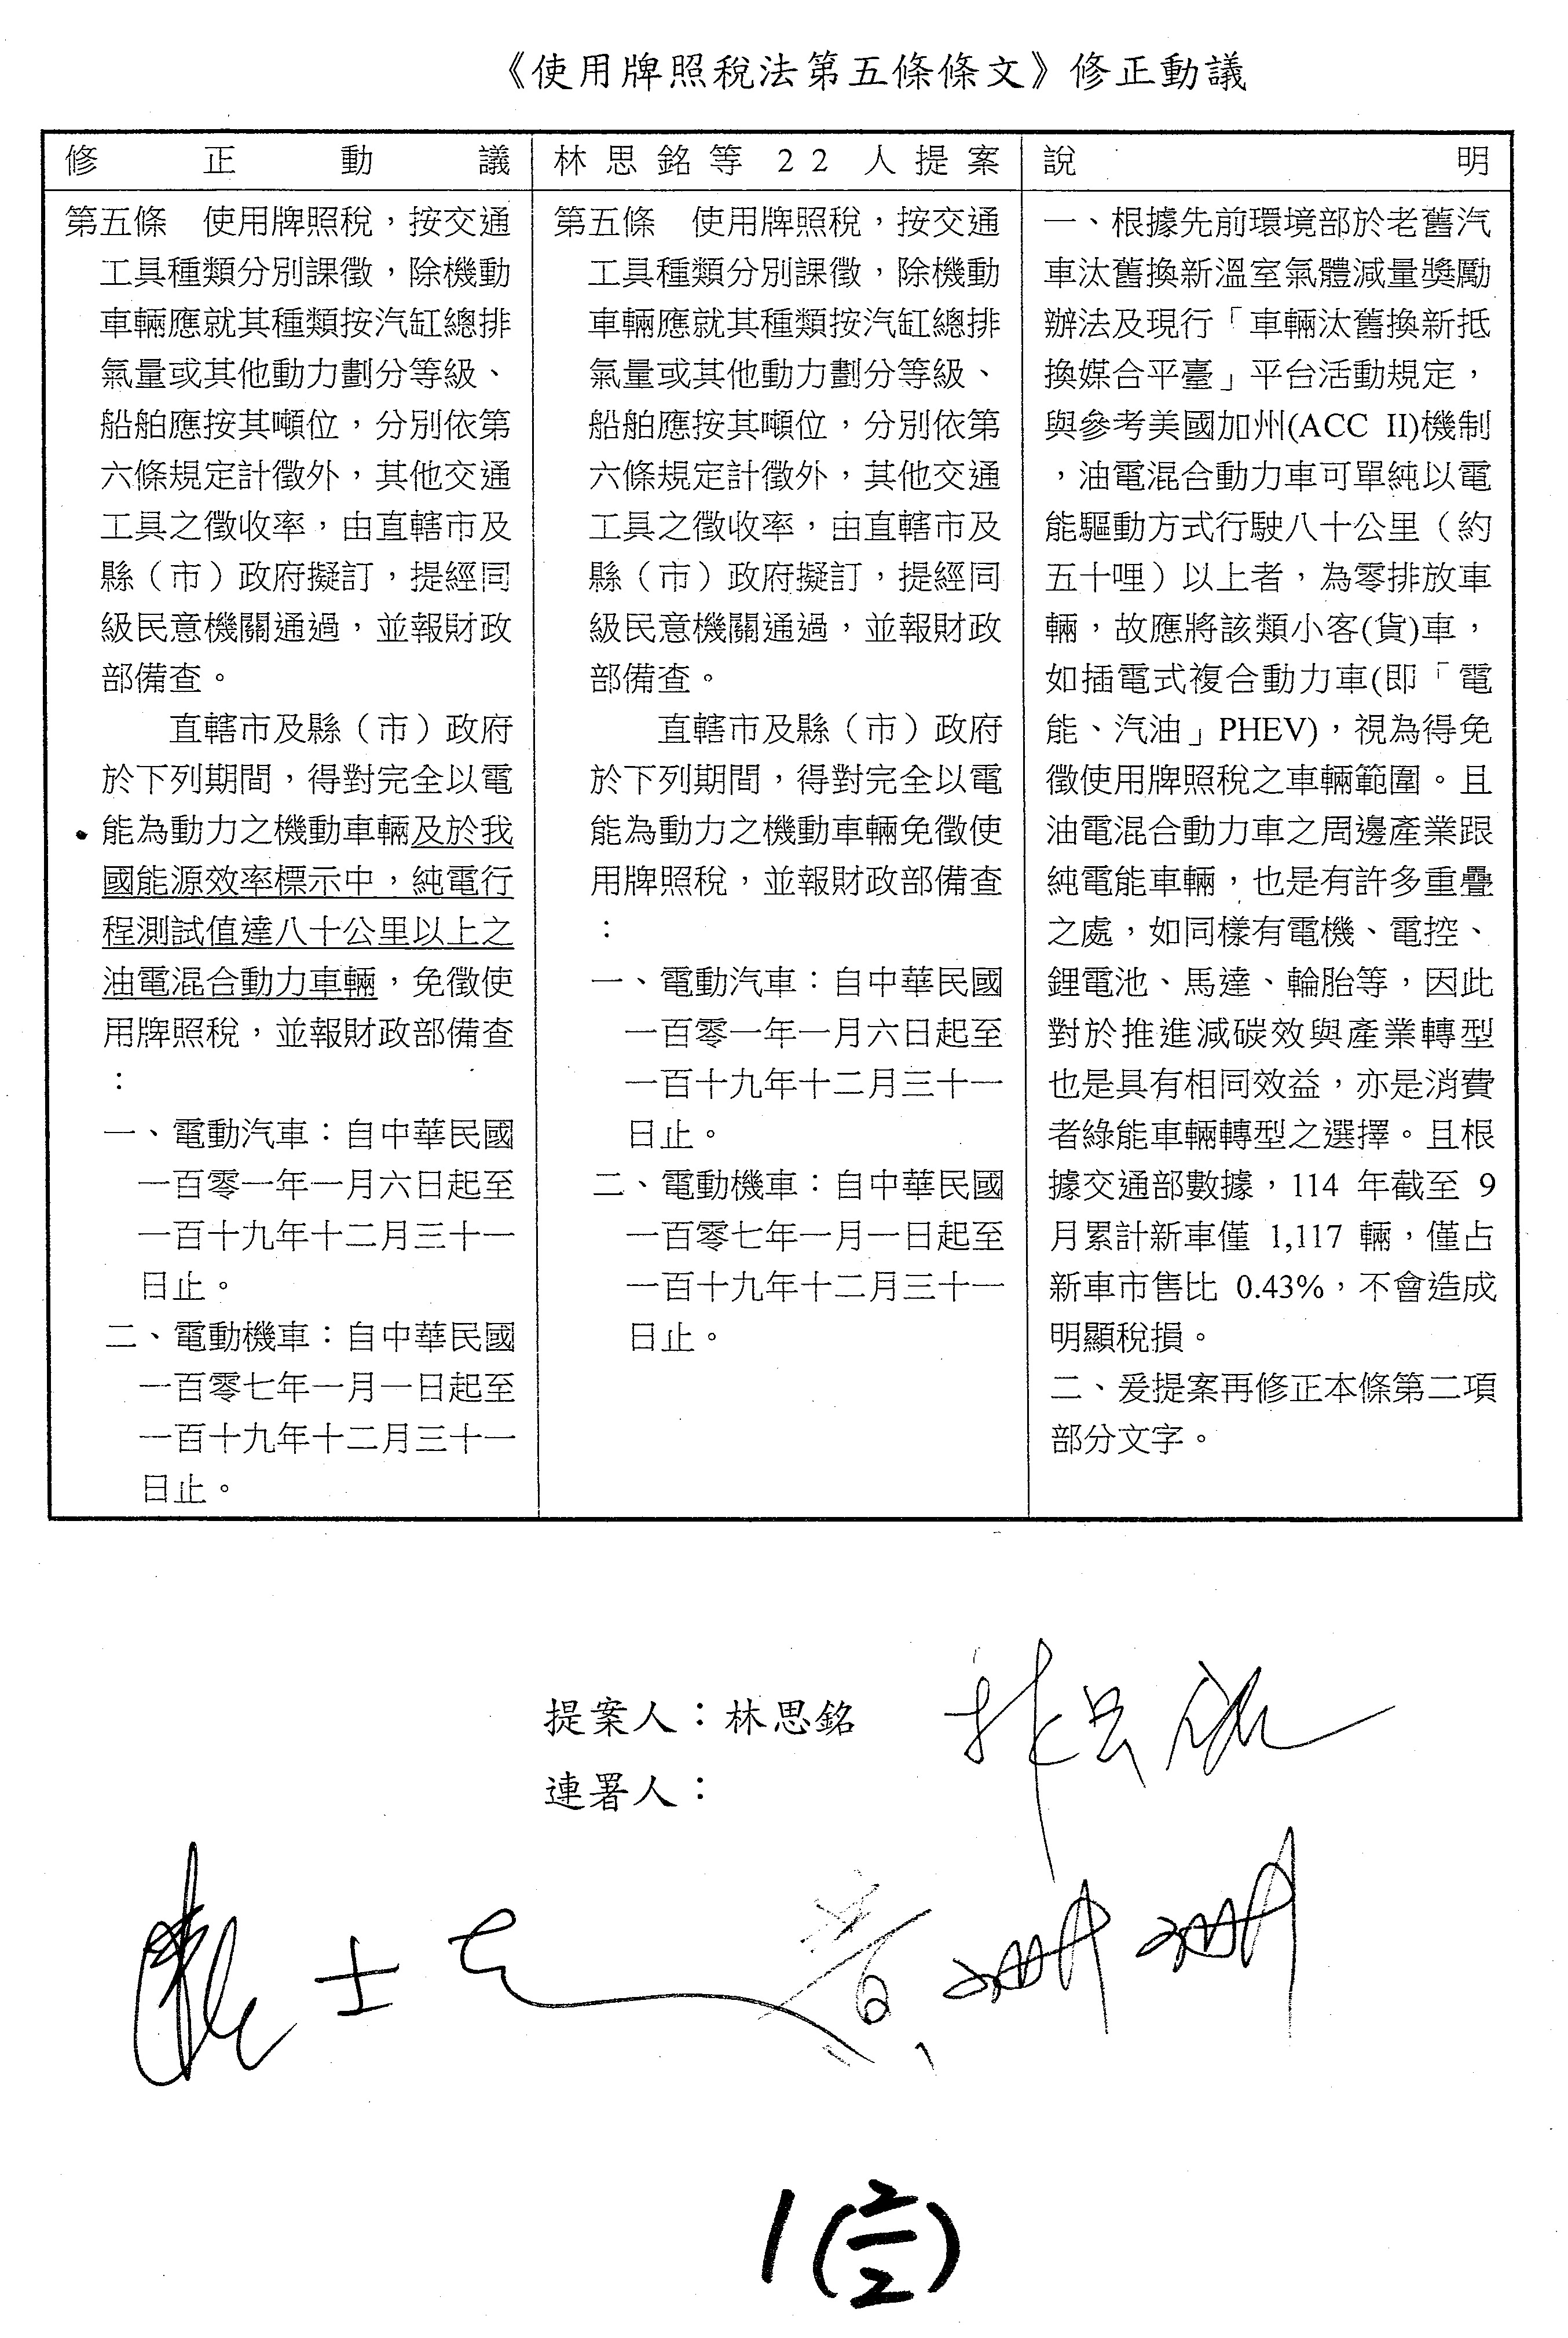 《使用牌照稅法第五條條文》修正動議
修正動議
第五條　使用牌照稅，按交通
工具種類分別課徵，除機動
車輛應就其種類按汽缸總排
氣量或其他動力劃分等級、
船舶應按其噸位，分別依第
六條規定計徵外，其他交通
工具之徵收率，由直轄市及
縣（市）政府擬訂，提經同
級民意機關通過，並報財政
部備查。
直轄市及縣（市）政府
於下列期間，得對完全以電
能為動力之機動車輛及於我
國能源效率標示中，純電行
程測試值達八十公里以上之
油電混合動力車輛，免徵使
用牌照稅，並報財政部備查
：
一、電動汽車：自中華民國
一百零一年一月六日起至
一百十九年十二月三十一
日止。
二、電動機車：自中華民國
一百零七年一月一日起至
一百十九年十二月三十一
日止。
林思銘等22人提案
第五條　使用牌照稅，按交通
工具種類分別課徵，除機動
車輛應就其種類按汽缸總排
氣量或其他動力劃分等級、
船舶應按其噸位，分別依第
六條規定計徵外，其他交通
工具之徵收率，由直轄市及
縣（市）政府擬訂，提經同
級民意機關通過，並報財政
部備查。
直轄市及縣（市）政府
於下列期間，得對完全以電
能為動力之機動車輛免徵使
用牌照稅，並報財政部備查
：
一、電動汽車：自中華民國
一百零一年一月六日起至
一百十九年十二月三十一
日止。
二、電動機車：自中華民國
一百零七年一月一日起至
一百十九年十二月三十一
日止。
說明
一、根據先前環境部於老舊汽
車汰舊換新溫室氣體減量獎勵
辦法及現行「車輛汰舊換新抵
換媒合平臺」平台活動規定，
與參考美國加州(ACC II)機制
，油電混合動力車可單純以電
能驅動方式行駛八十公里（約
五十哩）以上者，為零排放車
輛，故應將該類小客(貨)車，
如插電式複合動力車(即「電
能、汽油」PHEV)，視為得免
徵使用牌照稅之車輛範圍。且
油電混合動力車之周邊產業跟
純電能車輛，也是有許多重疊
之處，如同樣有電機、電控、
鋰電池、馬達、輪胎等，因此
對於推進減碳效與產業轉型
也是具有相同效益，亦是消費
者綠能車輛轉型之選擇。且根
據交通部數據，114 年截至 9
月累計新車僅 1,117 輛，僅占
新車市售比 0.43%，不會造成
明顯稅損。
二、爰提案再修正本條第二項
部分文字。
提案人：林思銘
連署人：
1(2/2)